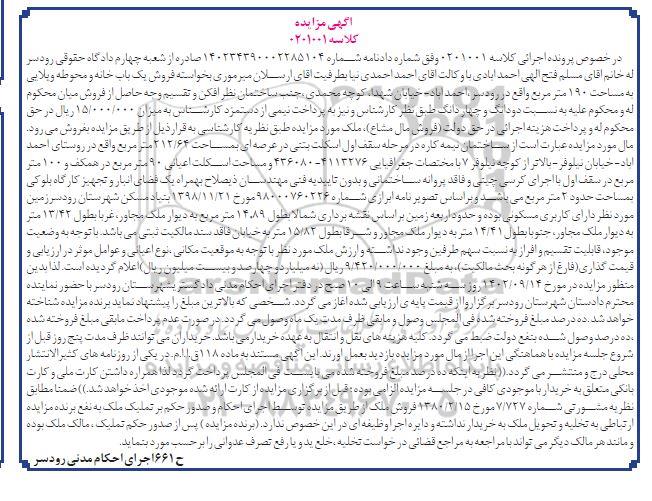 آگهی مزایده
کلاسه ۰۲۰۱۰۰۱
در خصوص پرونده اجرائی کلاسه ۰۲۰۱۰۰۱ وفق شماره دادنامه شماره ۱۴۰۲۳۴۳۹۰۰۰۲۲۸۵۱۰۴ صادره از شعبه چهارم دادگاه حقوقی رودسر
له خانم اقای مسلم فتح الهی احمد ابادی با وکالت اقای احمد احمدی نیا بطرفیت اقای ارسلان میرموری بخواسته فروش یک باب خانه و محوطه ویلایی
به مساحت ۱۹۰ متر مربع واقع در رودسر، احمد اباد-خیابان شهدا، کوچه محمدی، جنب ساختمان نظر افکن و تقسیم وجه حاصل از فروش میان محکوم
له و محکوم علیه به نسبت دودانگ و چهار دانگ طبق نظر کارشناس و نیز به پرداخت نیمی از دستمزد کارشناس به میزان ۱۵/۰۰۰/۰۰۰ ریال در حق
محکوم له و پرداخت هزینه اجرائی در حق دولت (فروش مال مشاع)، ملک مورد مزایده طبق نظر به کارشناسی به قرار ذیل از طریق مزایده بفروش می رود.
مال مورد مزایده عبارت است از ساختمان نیمه کاره در مرحله سقف اول اسکلت بتنی در عرصه ای بمساحت ۲۱۲/۶۴ متر مربع واقع در روستای احمد
اباد-خیابان نیلوفر-بالاتر از کوچه نیلوفر ۷ با مختصات جغرافیایی ۴۱۱۳۲۷۶-۴۳۶۰۸۰ و مساحت اسکلت اعیانی ۹۰ متر مربع در همکف و ۱۰۰ متر
مربع در سقف اول با اجرای کرسی چینی و فاقد پروانه ساختمانی و بدون تاییدیه فنی مهندسان ذیصلاح بهمراه یک فضای انبار و تجهیز کارگاه بلوکی
بمساحت حدود ۲ متر مربع می باشد و براساس تصویر نامه ابرازی شماره ۹۸۰۰۰۷۶۰۲۲۶ مورخ ۱۳۹۸/۱۱/۲۱ بنیاد مسکن شهرستان رودسر زمین
مورد نظر دارای کاربری مسکونی بوده و حدود اربعه زمین براساس نقشه برداری شمالا بطول ۱۴.۸۹ متر مربع به دیوار ملک مجاور، غربا بطول ۱۳/۴۲ متر
به دیوار ملک مجاور، جنوبا بطول ۱۴/۴۱ متر به دیوار ملک مجاور و شرقا بطول ۱۵/۸۲ متر به خیابان فاقد سند مالکیت ثبتی می باشد. با توجه به وضعیت
موجود، قابلیت تقسیم و افراز به نسبت سهم طرفین وجود نداشته و ارزش ملک مورد نظر با توجه به موقعیت مکانی، نوع اعیانی و عوامل موثر در ارزیابی و
قیمت گذاری (فارغ از هر گونه بحث مالکیت)، به مبلغ ۹/۴۲۰/۰۰۰/۰۰۰ ریال (نه میلیارد و چهارصد و بیست میلیون ریال) اعلام گردیده است. لذا بدین
منظور مزایده در مورخ ۱۴۰۲/۰۹/۱۴ روز سه شنبه ساعت ۹ الی ۱۰ صبح در دفتر اجرای احکام مدنی دادگستر پشهرستان رودسر با حضور نماینده
محترم دادستان شهرستان رودسر برگزار و از قیمت پایه ی ارزیابی شده آغاز می گردد. شخصی که بالاترین مبلغ را پیشنهاد نماید برنده مزایده شناخته
خواهد شد. ده درصد مبلغ فروخته شده فی المجلس وصول و مابقی ظرف مدت یک ماه وصول می گردد. در صورت عدم پرداخت مابقی مبلغ فروخته شده
، ده درصد وصول شده بنفع دولت ضبط می گردد. کلیه هزینه های نقل و انتقال به عهده خریدار می باشد. خریداران می توانند ظرف مدت پنج روز قبل از
شروع جلسه مزایده با هماهنگی این اجرا از مال مورد مزایده بازدید بعمل اورند. این آگهی مستند به ماده ۱۱۸ ق.ا.ا.م. در یکی از روزنامه های کثیرالانتشار
محلی درج و منتشر می گردد. ((نظر به اینکه ده درصد مبلغ فروخته شده می بایست فی المجلس پرداخت گردد لذا همراه داشتن کارت ملی و کارت
بانکی متعلق به خریدار با موجودی کافی در جلسه مزایده الزامی بوده؛ قبل از برگزاری مزایده از کارت ارائه شده موجودی اخذ خواهد شد.)) ضمنا مطابق
نظریه مشورتی شماره ۷/۷۲۷ مورخ ۱۳۸۰/۲/۱۵ فروش ملک از طریق مزایده توسط اجرای احکام و صدور حکم بر تملیک ملک به نفع برنده مزایده
ارتباطی به تخلیه و تحویل ملک به خریدار نداشته و دایره اجرا وظیفه ای در این خصوص ندارد. (برنده مزایده) پس از صدور حکم تملیک، مالک ملک بوده
و مانند هر مالک دیگر می تواند با مراجعه به مراجع قضائی درخواست تخلیه، خلع ید و یا رفع تصرف عدوانی را بر حسب مورد بنماید.
ح ۶۶۱ اجرای احکام مدنی رودسر